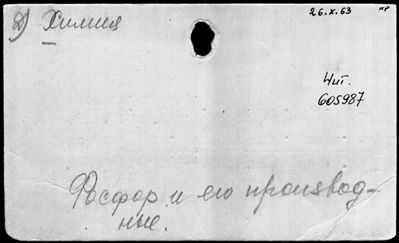 Д) Химия
26.X.63
нр
Чит.
605987
Фосфор и его производ-
ные.